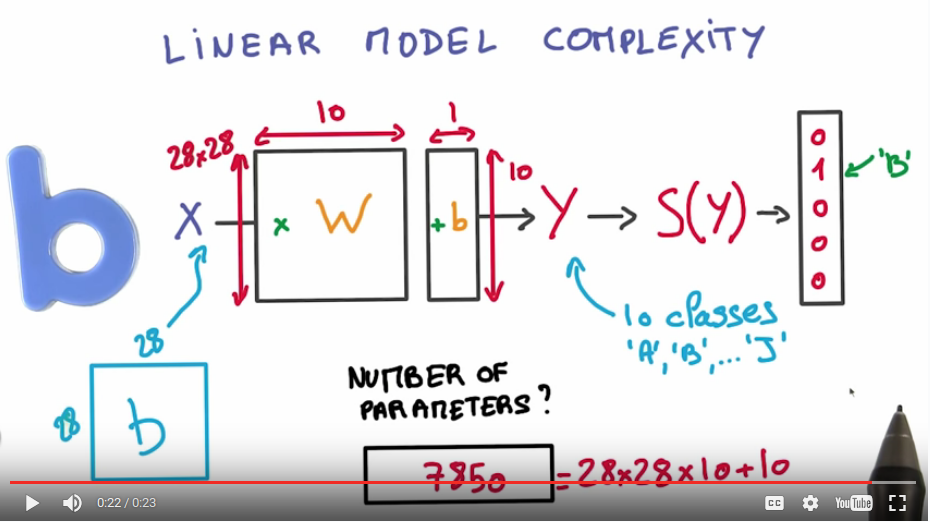 LINEAR MODEL COMPLEXITY
b
10
1
28x28
X
x W
+ b
10
Y
S(Y)
0
1
0
0
0
'B'
10 classes
'A', 'B', ... 'J'
28
28
b
NUMBER OF
PARAMETERS?
7850 = 28x28x10+10
0:22 / 0:23
CC
YouTube